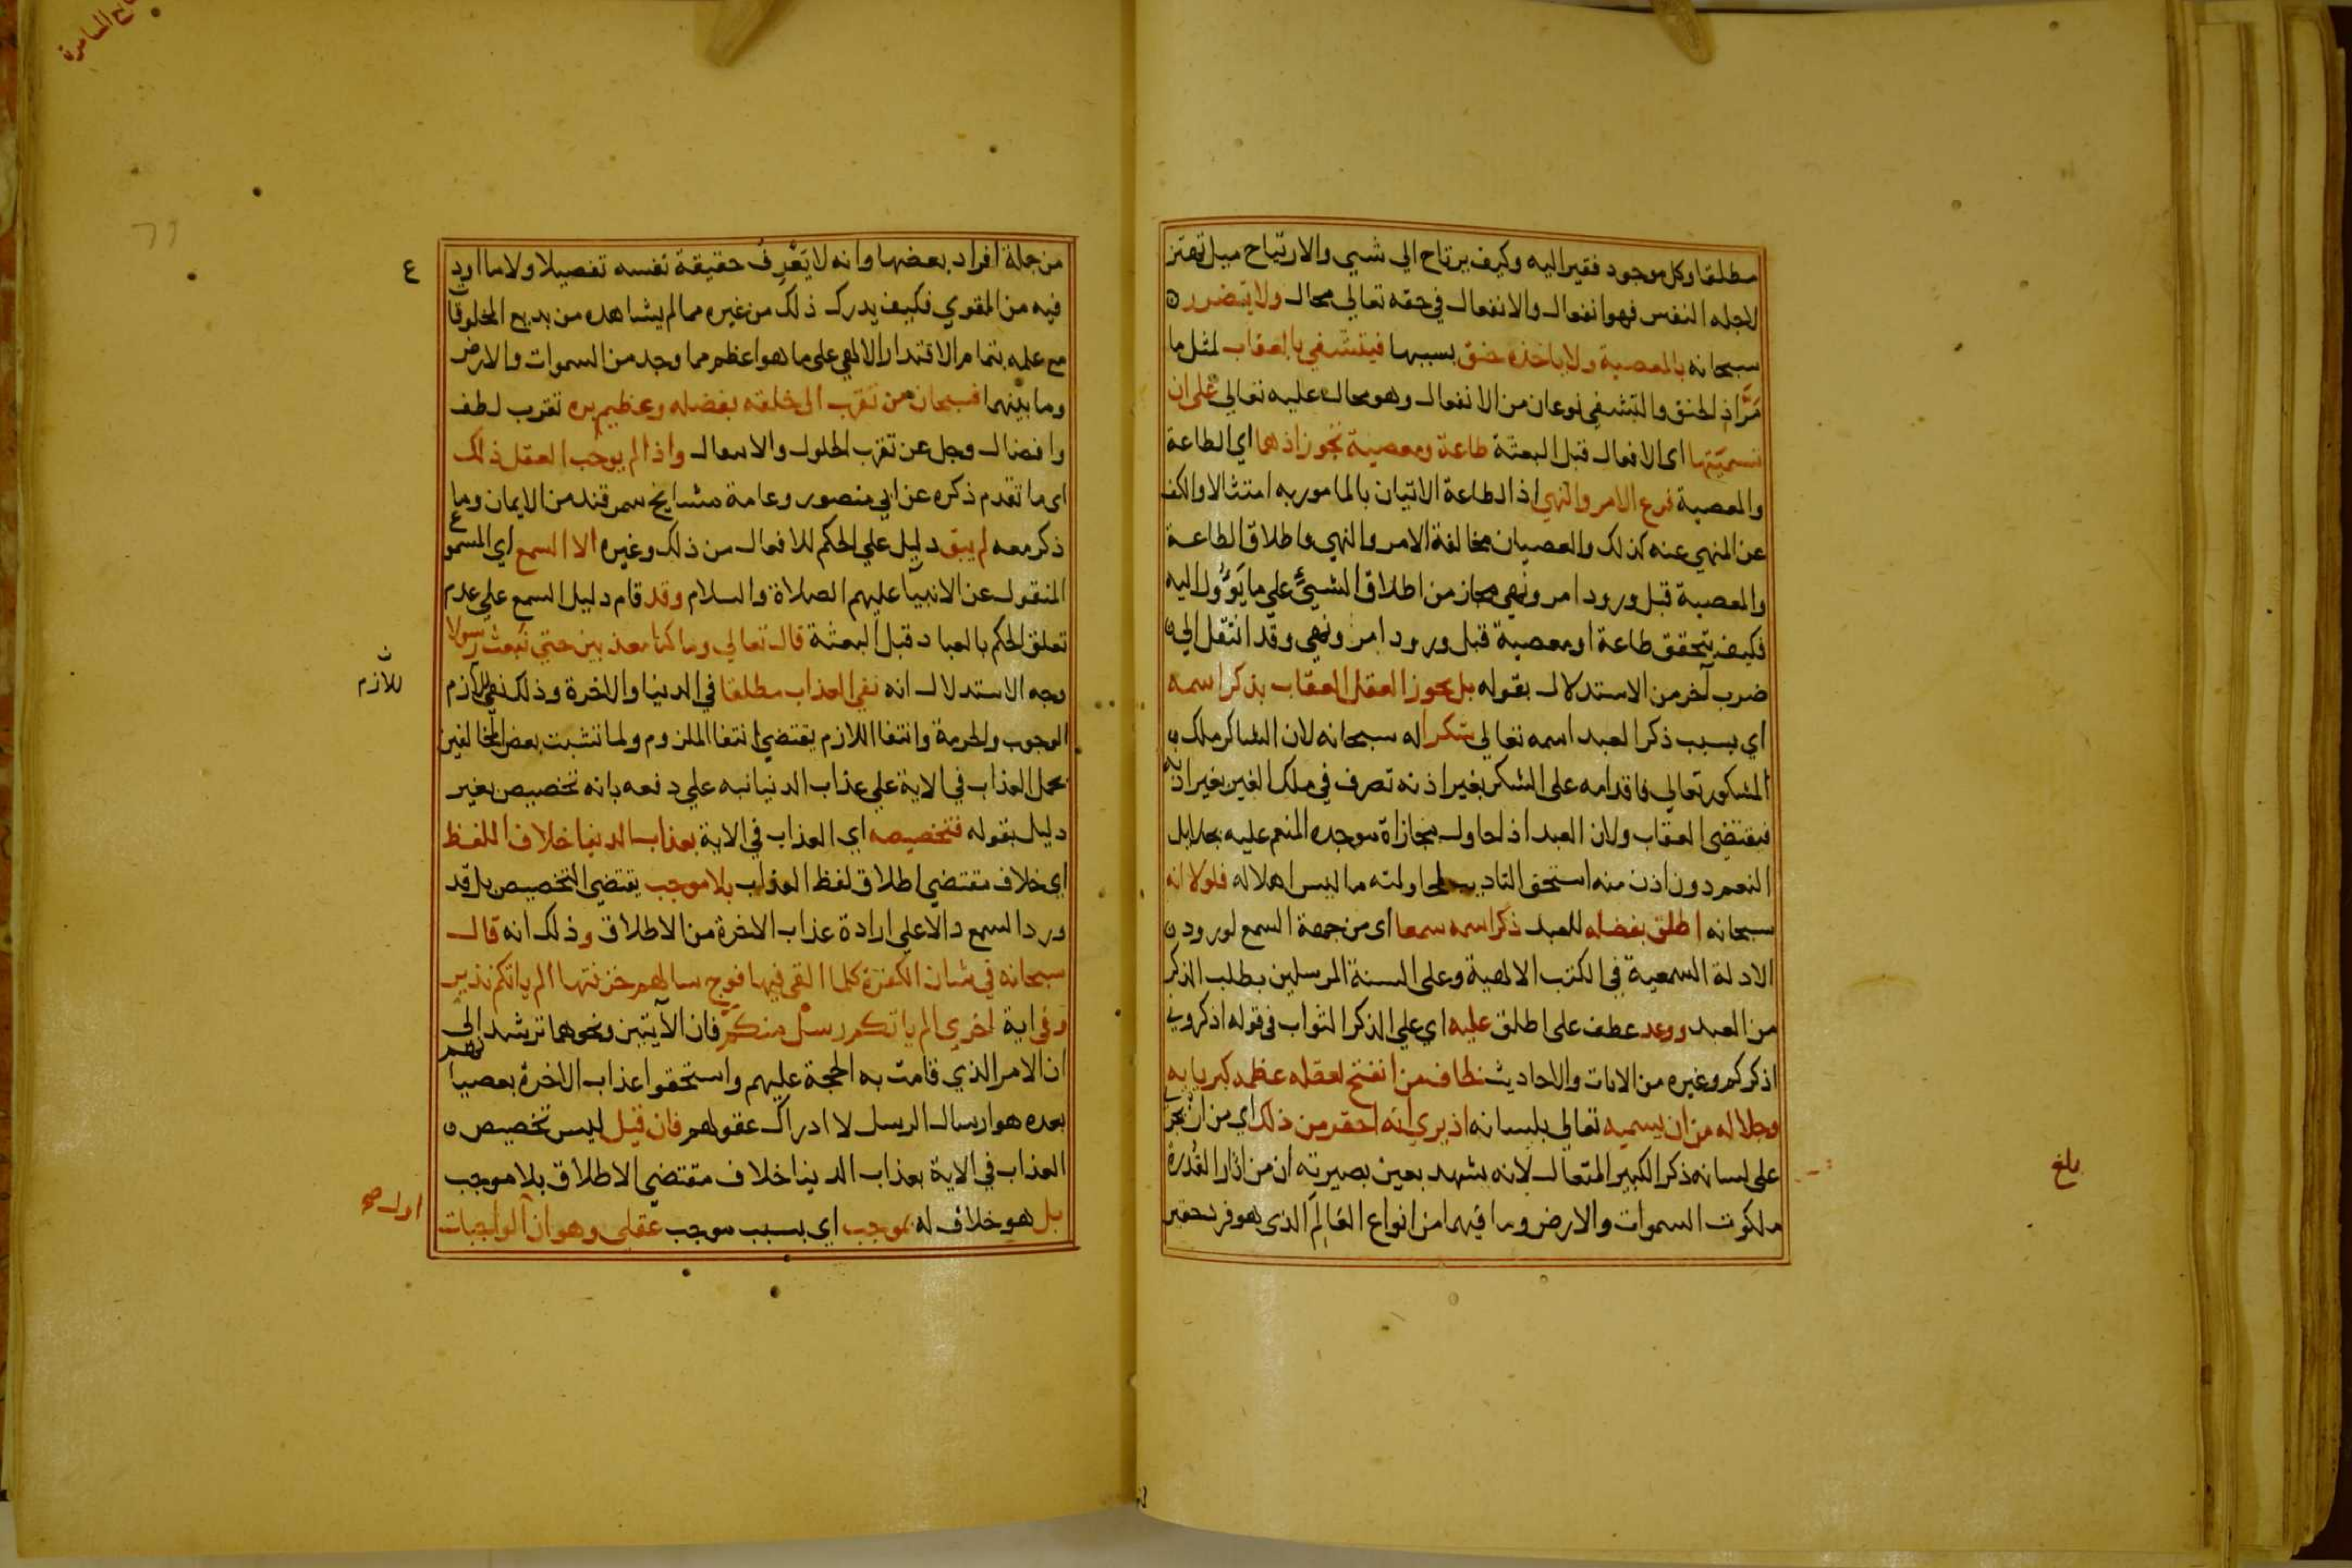 مطلقا وكل موجود فقير اليه وكيف يرتاح الي شيي والارتياح ميل تهتز
لاجله النفس فهو انفعال والانفعال في حقه تعالي محال ولا يتضرر
سبحانه بالمعصية ولا ياخذه حنق بسببها فيتشفي بالعقاب لمثل ما
مَرَّ اذ الحنق والتشفي نوعان من الانفعال وهو محال عليه تعالي علي ان
تسميتها اي الافعال قبل البعثة طاعة ومعصية تجوز اذ هما اي الطاعة
والمعصية فرع الامر والنهي اذ الطاعة الاتيان بالمامور به امتثالا والكف
عن المنهي عنه كذلك والعصيان مخالفة الامر والنهي واطلاق الطاعة
والمعصية قبل ورود امر ونهي مجاز من اطلاق الشيئ علي ما يَؤُول اليه
فكيف يتحقق طاعة او معصية قبل ورود امر ونهي وقد انتقل الي
ضرب آخر من الاستدلال بقوله بل يجوز العقل العقاب بذكر اسمه
اي بسبب ذكر العبد اسمه تعالي شكرا له سبحانه لان الشاكر ملك
المشكور تعالي فاقدامه علي الشكر بغير اذنه تصرف في ملك الغير بغير اذنه
فيقتضي العقاب ولان العبد اذا حاول مجازاة موجده المنعم عليه بجلايل
النعم دون اذن منه استحق التاديب لمحاولته ما ليس اهلا له فلولا انه
سبحانه اطلق بفضله للعبد ذكر اسمه سمعا اي من جهة السمع لورود
الادلة السمعية في الكتب الالهية وعلي السنة المرسلين بطلب الذكر
من العبد ووعد عطف علي اطلق عليه اي علي الذكر الثواب في قوله اذكروني
اذكركم وغيره من الايات والاحاديث لخاف من انفتح لعقله عظمة كبريايه
وجلاله من ان يسميه تعالي بلسانه اذ يري انه احقر من ذلك اي من ان يجري
علي لسانه ذكر الكبير المتعال لانه يشهد بعين بصيرته ان من اثار القُدرة
ملكوت السموات والارض وما فيهما من انواع العالم الذي هو فرد حقير
بلغ
من جملة افراد بعضها وانه لا يَعْرِف حقيقة نفسه تفصيلا ولا ما اودع
فيه من القوي فكيف يدرك ذلك من غيره مما لم يشاهده من بديع المخلوقات
مع علمه بتمام الاقتدار الالهي علي ما هو اعظم مما وجد من السموات والارض
وما بينهما فسبحان من تقرب الي خلقه بفضله وعظيم بره تقرب لطف
وافضال وجل عن تقرب الحلول والانتقال واذا لم يوجب العقل ذلك
اي ما تقدم ذكره عن ابي منصور وعامة مشايخ سمرقند من الايمان وما
ذكر معه لم يبق دليل علي الحكم للافعال من ذلك وغيره الا السمع اي المسموع
المنقول عن الانبيا عليهم الصلاة والسلام وقد قام دليل السمع علي عدم
تعلق الحكم بالعباد قبل البعثة قال تعالي وما كنا معذبين حتي نبعث رسولا
وجه الاستدلال انه نفي العذاب مطلقا في الدنيا والاخرة وذلك نفي للازم
الوجوب والحرمة وانتفا اللازم يقتضي انتفا الملزوم ولما تشبث بعض المخالفين
بحمل العذاب في الاية علي عذاب الدنيا نبه علي دفعه بانه تخصيص بغير
دليل بقوله فتخصيصه اي العذاب في الاية بعذاب الدنيا خلاف اللفظ
اي خلاف مقتضي اطلاق لفظ العذاب بلا موجب يقتضي التخصيص بل قد
ورد السمع دالا علي ارادة عذاب الاخرة من الاطلاق وذلك انه قال
سبحانه في شان الكفرة كلما القي فيها فوج سالهم خزنتها الم ياتكم نذير
وفي اية اخري الم ياتكم رسل منكم فان الآيتين ونحوهما ترشد الي
ان الامر الذي قامت به الحجة عليهم واستحقوا عذاب الاخرة بعصيانهم
بعده هو ارسال الرسل لا ادراك عقولهم فان قيل ليس تخصيص
العذاب في الاية بعذاب الدنيا خلاف مقتضي الاطلاق بلا موجب
بل هو خلاف له بموجب اي بسبب موجب عقلي وهو ان الواجبات
ع
ن
للازم
اول صح